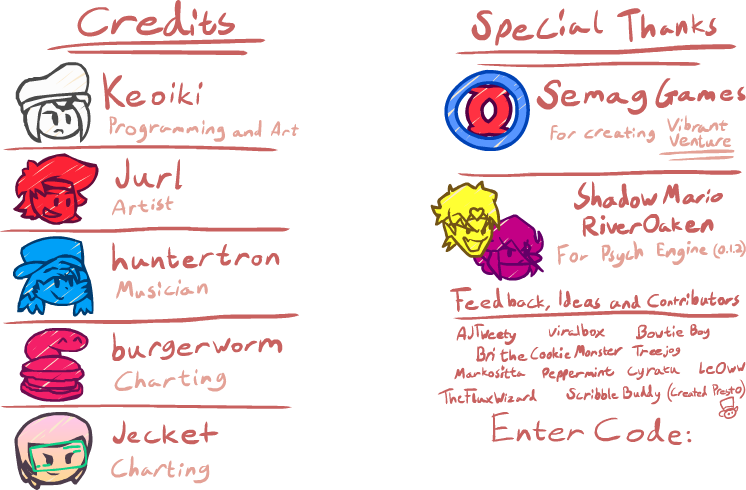 Credits
Keoiki
Programming and Art
Jurl
Artist
huntertron
Musician
burgerworm
Charting
Jecket
Charting
Special Thanks
Semag Games
For creating Vibrant
Venture
Shadow Mario
RiverOaken
For Psych Engine (0.1.2)
Feedback, Ideas and Contributors
AJTweety viralbox Bowtie Boy
Bri the Cookie Monster Treejog
Markositta Peppermint Cyraku LeOww
TheFluxWizard Scribble Buddy (Created Presto)
Enter Code: